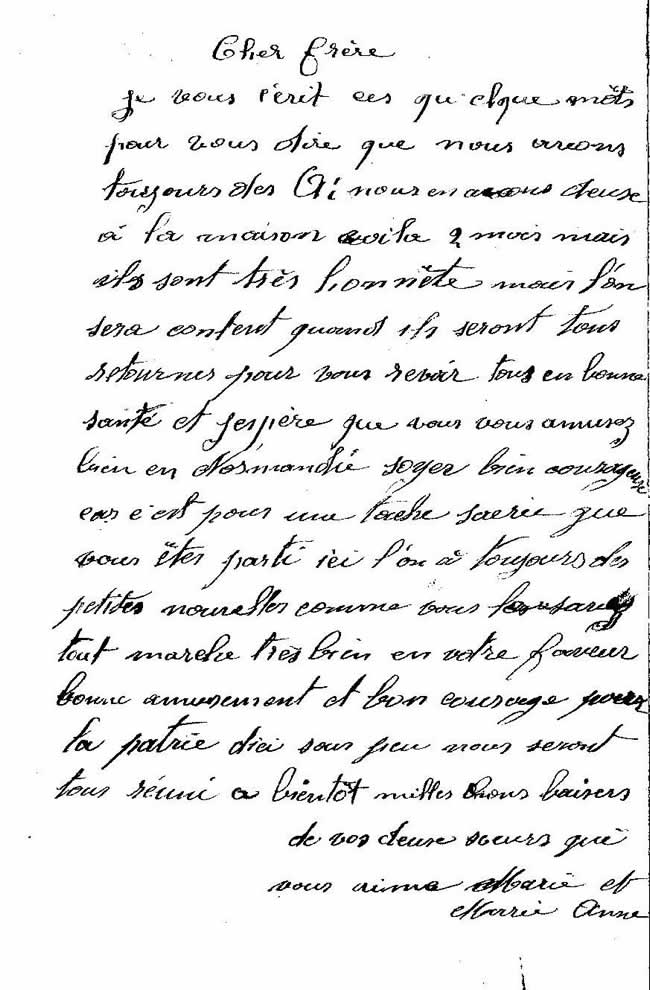 Cher frère
je vous l'écrit ces quelque mots
pour vous dire que nous avons
toujours des Gi nous en avons deuse
à la maison voila 2 mois mais
ils sont très honnète mais l'on
sera content quand ils seront tous
retournes pour vous revoir tous en bonne
santé et jespère que vous vous amusez
bien en Normandie soyer bien courageuse
car c'est pour une tache sacrie que
vous ëtes parti ici l'on à toujours des
petites nouvelles comme vous
tout marche très bien en votre faveur
bonne amusement et bon courage pour
la patrie dici sous peu nous seront
tous réuni a bientôt milles bons baisers
de vos deuse soeurs qui
vous aime Marie et
Marie Anne